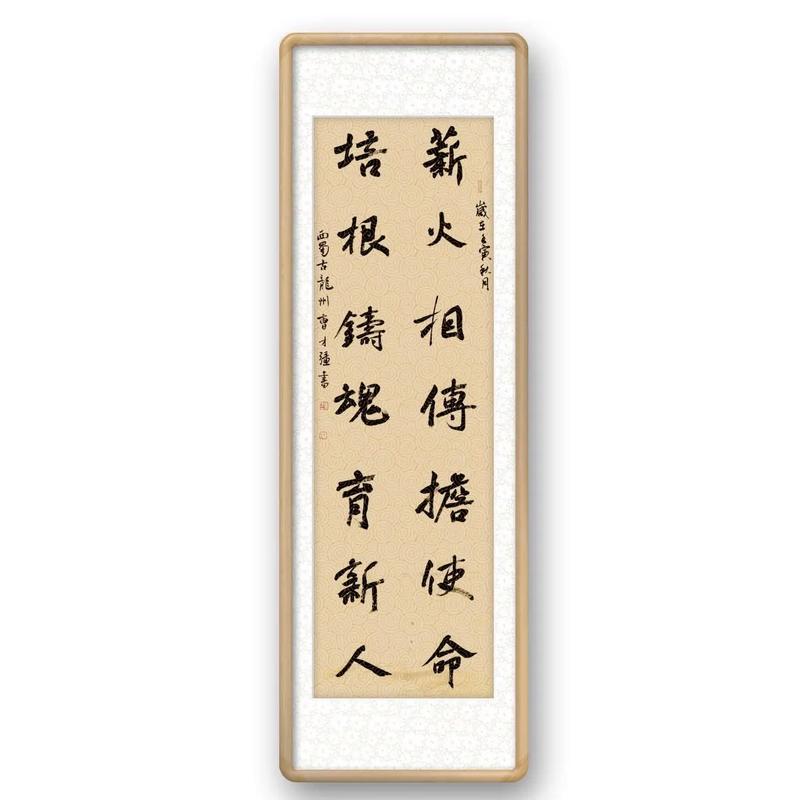 薪火相傳擔使命
歲在壬寅秋月
培根鑄魂育新人
西蜀古龍州曹才強書